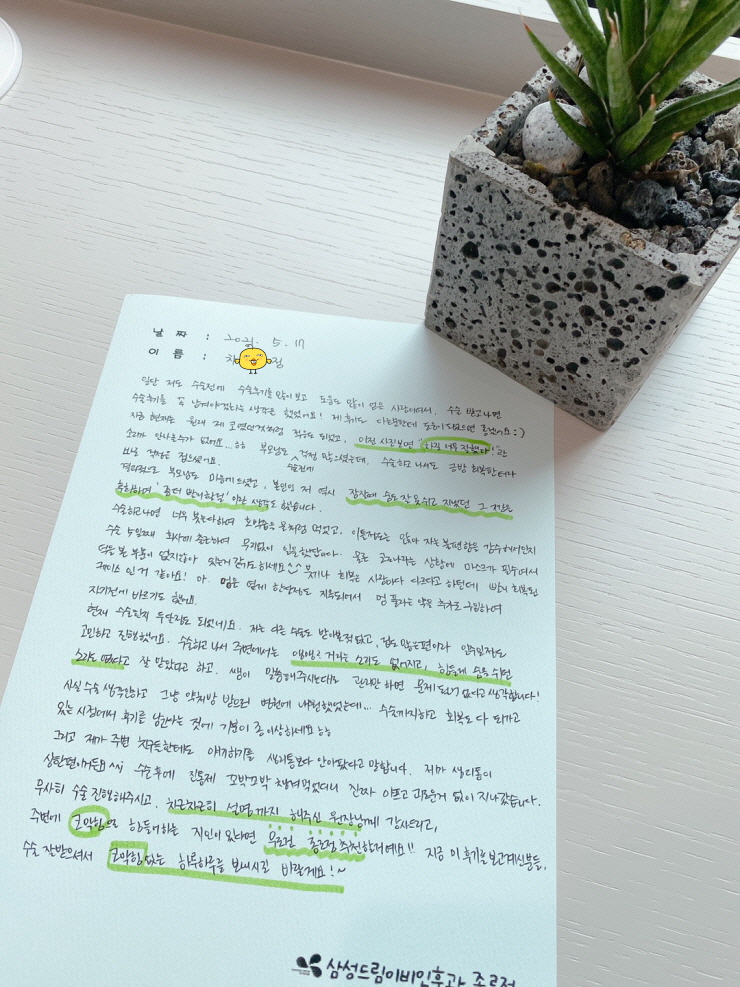 날 짜 : 5. 17
이 름 : 차 정
일단 저도 수술전에 수술후기를 많이보고 도움도 많이 얻은 사람이여서, 수술 받고나면
수술후기를 꼭 남겨야겠다는 생각은 했었어요! 제 후기도 다른분한테 도움이되었으면 좋겠어요 :)
지금 현재는 원래 제 코였던것처럼 적응도 되었고, 이전 사진보면 "하길 너무 잘했다!"란
소리가 안나올수가 없어요 부모님도 수술전에 걱정 많으셨는데, 수술하고 나서도 금방 회복한터라
결과적으로 부모님도 마음에 드셨고, 본인인 저 역시 잠잘때 숨도 잘 못쉬고 지냈던 그 저로는
수술하고나면 너무 붓는다하여 호박즙을 물처럼 먹었고, 이틀정도는 앉아 자는 불편함은 감수하여서인지
수술 5일째 회사에 출근하여 무리없이 일을했답니다. 물론 코로나라는 상황에 마스크가 필수여서
덕을 본 부분이 없지않아 있는거 같기도하네요 ^^ 붓기나 회복은 사람마다 다르다고 하던데 빨리 회복된
케이스 인거 같아요! 아 멍은 옅게 한달정도 지속되어서 멍 풀리는 약은 추가로 구입하여
자기전에 바르기도 했어요.
현재 수술한지 두달정도 되었네요. 저는 다른 수술도 받아본적 없고, 겁도 많은편이라 일주일정도
고민하고 진행했어요. 수술하고 나서 주변에서는 거리는 소리도 없어지고, 힘들게 숨을 쉬던
소리도 없다고 잘 말았다고 하고. 쌤이 말씀해주시는대로 관리만 하면 문제 되는거 없다고 생각합니다!
사실 수술 생각안하고 그냥 약처방 받으러 병원에 내원했었는데... 수술까지하고 회복도 다 되가고
있는 시점에서 후기를 남긴다는 것에 기분이 좀 이상하네요 ㅎㅎ
그리고 제가 주변 친구들한테도 얘기하기를 생리통보다 안아팠다고 말합니다. 제가 생리통이
심한편이거든요 ^^; 수술후에 진통제 꼬박꼬박 챙겨먹었더니 진짜 아프고 괴로운거 없이 지나갔습니다.
무사히 수술 진행해주시고, 차근차근히 설명까지 해주신 원장님께 감사드리고,
주변에 코막힘으로 힘들어하는 지인이 있다면 무조건 추천할거예요!! 지금 이 후기를 보고계신분들,
수술 잘받으셔서 코막힘없는 하루하루를 보내시길 바랄게요!~
삼성드림이비인후과 종로점